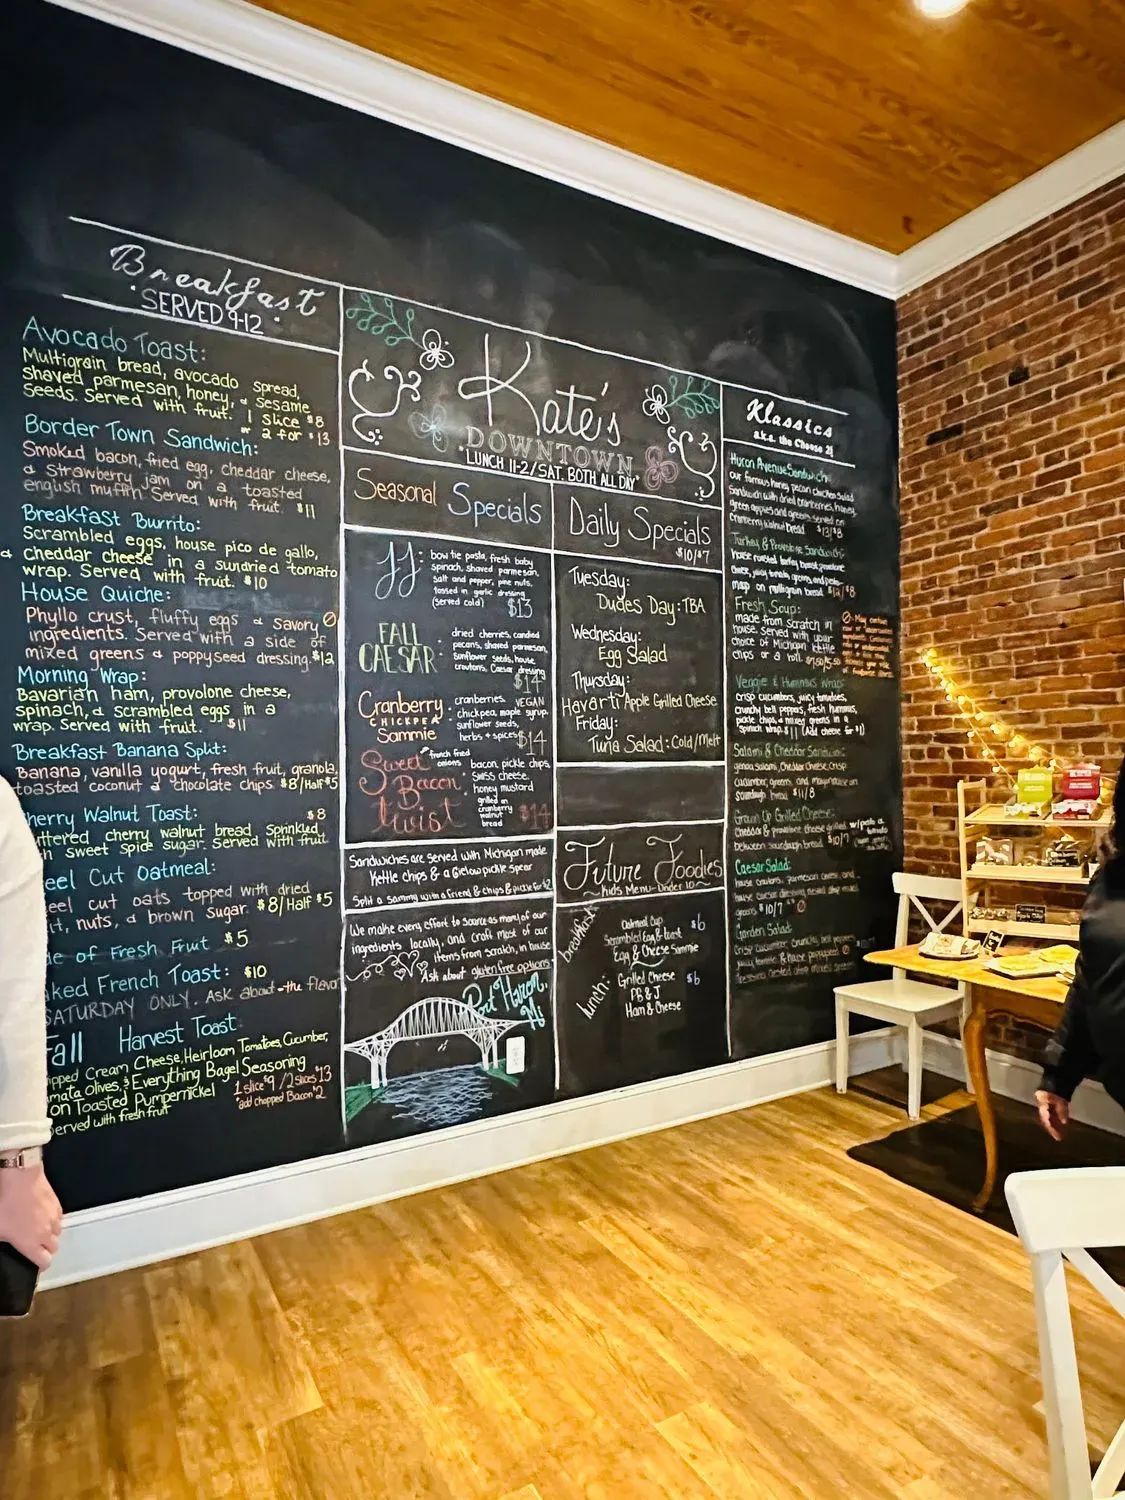 Breakfast
SERVED 9-12
Avocado Toast:
Multigrain bread, avocado spread,
shaved parmesan, honey, & sesame
seeds. Served with fruit. 1 slice $8
or 2 for $13
Border Town Sandwich:
Smoked bacon, fried egg, cheddar cheese,
& strawberry jam on a toasted
english muffin. Served with fruit. $11
Breakfast Burrito:
Scrambled eggs, house pico de gallo,
& cheddar cheese in a sundried tomato
wrap. Served with fruit. $10
House Quiche:
Phyllo crust, fluffy eggs & savory
ingredients. Served with a side of
mixed greens & poppyseed dressing. $12
Morning Wrap:
Bavarian ham, provolone cheese,
spinach, & scrambled eggs in a
wrap. Served with fruit. $11
Breakfast Banana Split:
Banana, vanilla yogurt, fresh fruit, granola,
toasted coconut & chocolate chips. $8/Half $5
herry Walnut Toast: $8
ttered cherry walnut bread. Sprinkled
h sweet spice sugar. Served with fruit
eel Cut Oatmeal:
eel cut oats topped with dried
t, nuts, & brown sugar. $8/Half $5
de of Fresh Fruit $5
ked French Toast: $10
SATURDAY ONLY. Ask about the flavor
Fall Harvest Toast:
ipped Cream Cheese, Heirloom Tomatoes, Cucumber,
mata Olives, & Everything Bagel Seasoning
on Toasted Pumpernickel
1 slice $9 / 2 slices $13
*add chopped Bacon $2
Served with fresh fruit
Kate's
DOWNTOWN
*LUNCH 11-2/SAT. BOTH ALL DAY*
Seasonal Specials
JJ: bow tie pasta, fresh baby
spinach, shaved parmesan,
salt and pepper, pine nuts,
tossed in garlic dressing
(served cold) $13
FALL
CAESAR: dried cherries, candied
pecans, shaved parmesan,
sunflower seeds, house
croutons, Caesar dressing
$14
Cranberry
CHICKPEA
Sammie: cranberries, VEGAN
chickpea, maple syrup,
sunflower seeds,
herbs & spices $14
Sweet
Bacon
Twist
french fried
onions
bacon, pickle chips,
swiss cheese,
honey mustard
grilled on
cranberry
walnut
bread $14
Sandwiches are served with Michigan made
Kettle chips & a Gielow pickle spear
Split a sammy with a friend & chips & pickle for $2
We make every effort to source as many of our
ingredients locally, and craft most of our
items from scratch, in house
Ask about gluten free options
Port Huron,
Mi
Daily Specials
$10/$7
Tuesday:
Dudes Day: TBA
Wednesday:
Egg Salad
Thursday:
Havarti Apple Grilled Cheese
Friday:
Tuna Salad: Cold/Melt
Future Foodies
~Kids Menu-Under 10~
breakfast:
Oatmeal Cup
Scrambled Egg & Toast $6
Egg & Cheese Sammie
lunch:
Grilled Cheese $6
PB & J
Ham & Cheese
Klassics
a.k.a. the Cheese 21
Huron Avenue Sandwich:
our famous honey pecan chicken salad
sandwich with dried cranberries, honey,
green apples and greens served on
cranberry walnut bread $13/$8
Turkey & Provolone Sandwich:
house roasted turkey breast, provolone
cheese, juicy tomato, greens, and pesto
mayo on multigrain bread $12/$8
Fresh Soup:
made from scratch in
house. served with your
choice of Michigan kettle
chips or a roll. $7.50/5.50
Veggie & Hummus Wrap:
crisp cucumbers, juicy tomatoes,
crunchy bell peppers, fresh hummus,
pickle chips, & mixed greens in a
spinach wrap. $11 (Add cheese for $1)
Salami & Cheddar Sandwich:
genoa salami, cheddar cheese, crisp
cucumber, greens, and mayonnaise on
sourdough bread $11/8
Grown Up Grilled Cheese:
cheddar & provolone cheese grilled
between sourdough bread $10/7
w/pesto &
tomato
Caesar Salad:
house croutons, parmesan cheese, and
house caesar dressing
greens $10/7
Garden Salad:
crisp cucumber, crunchy bell peppers,